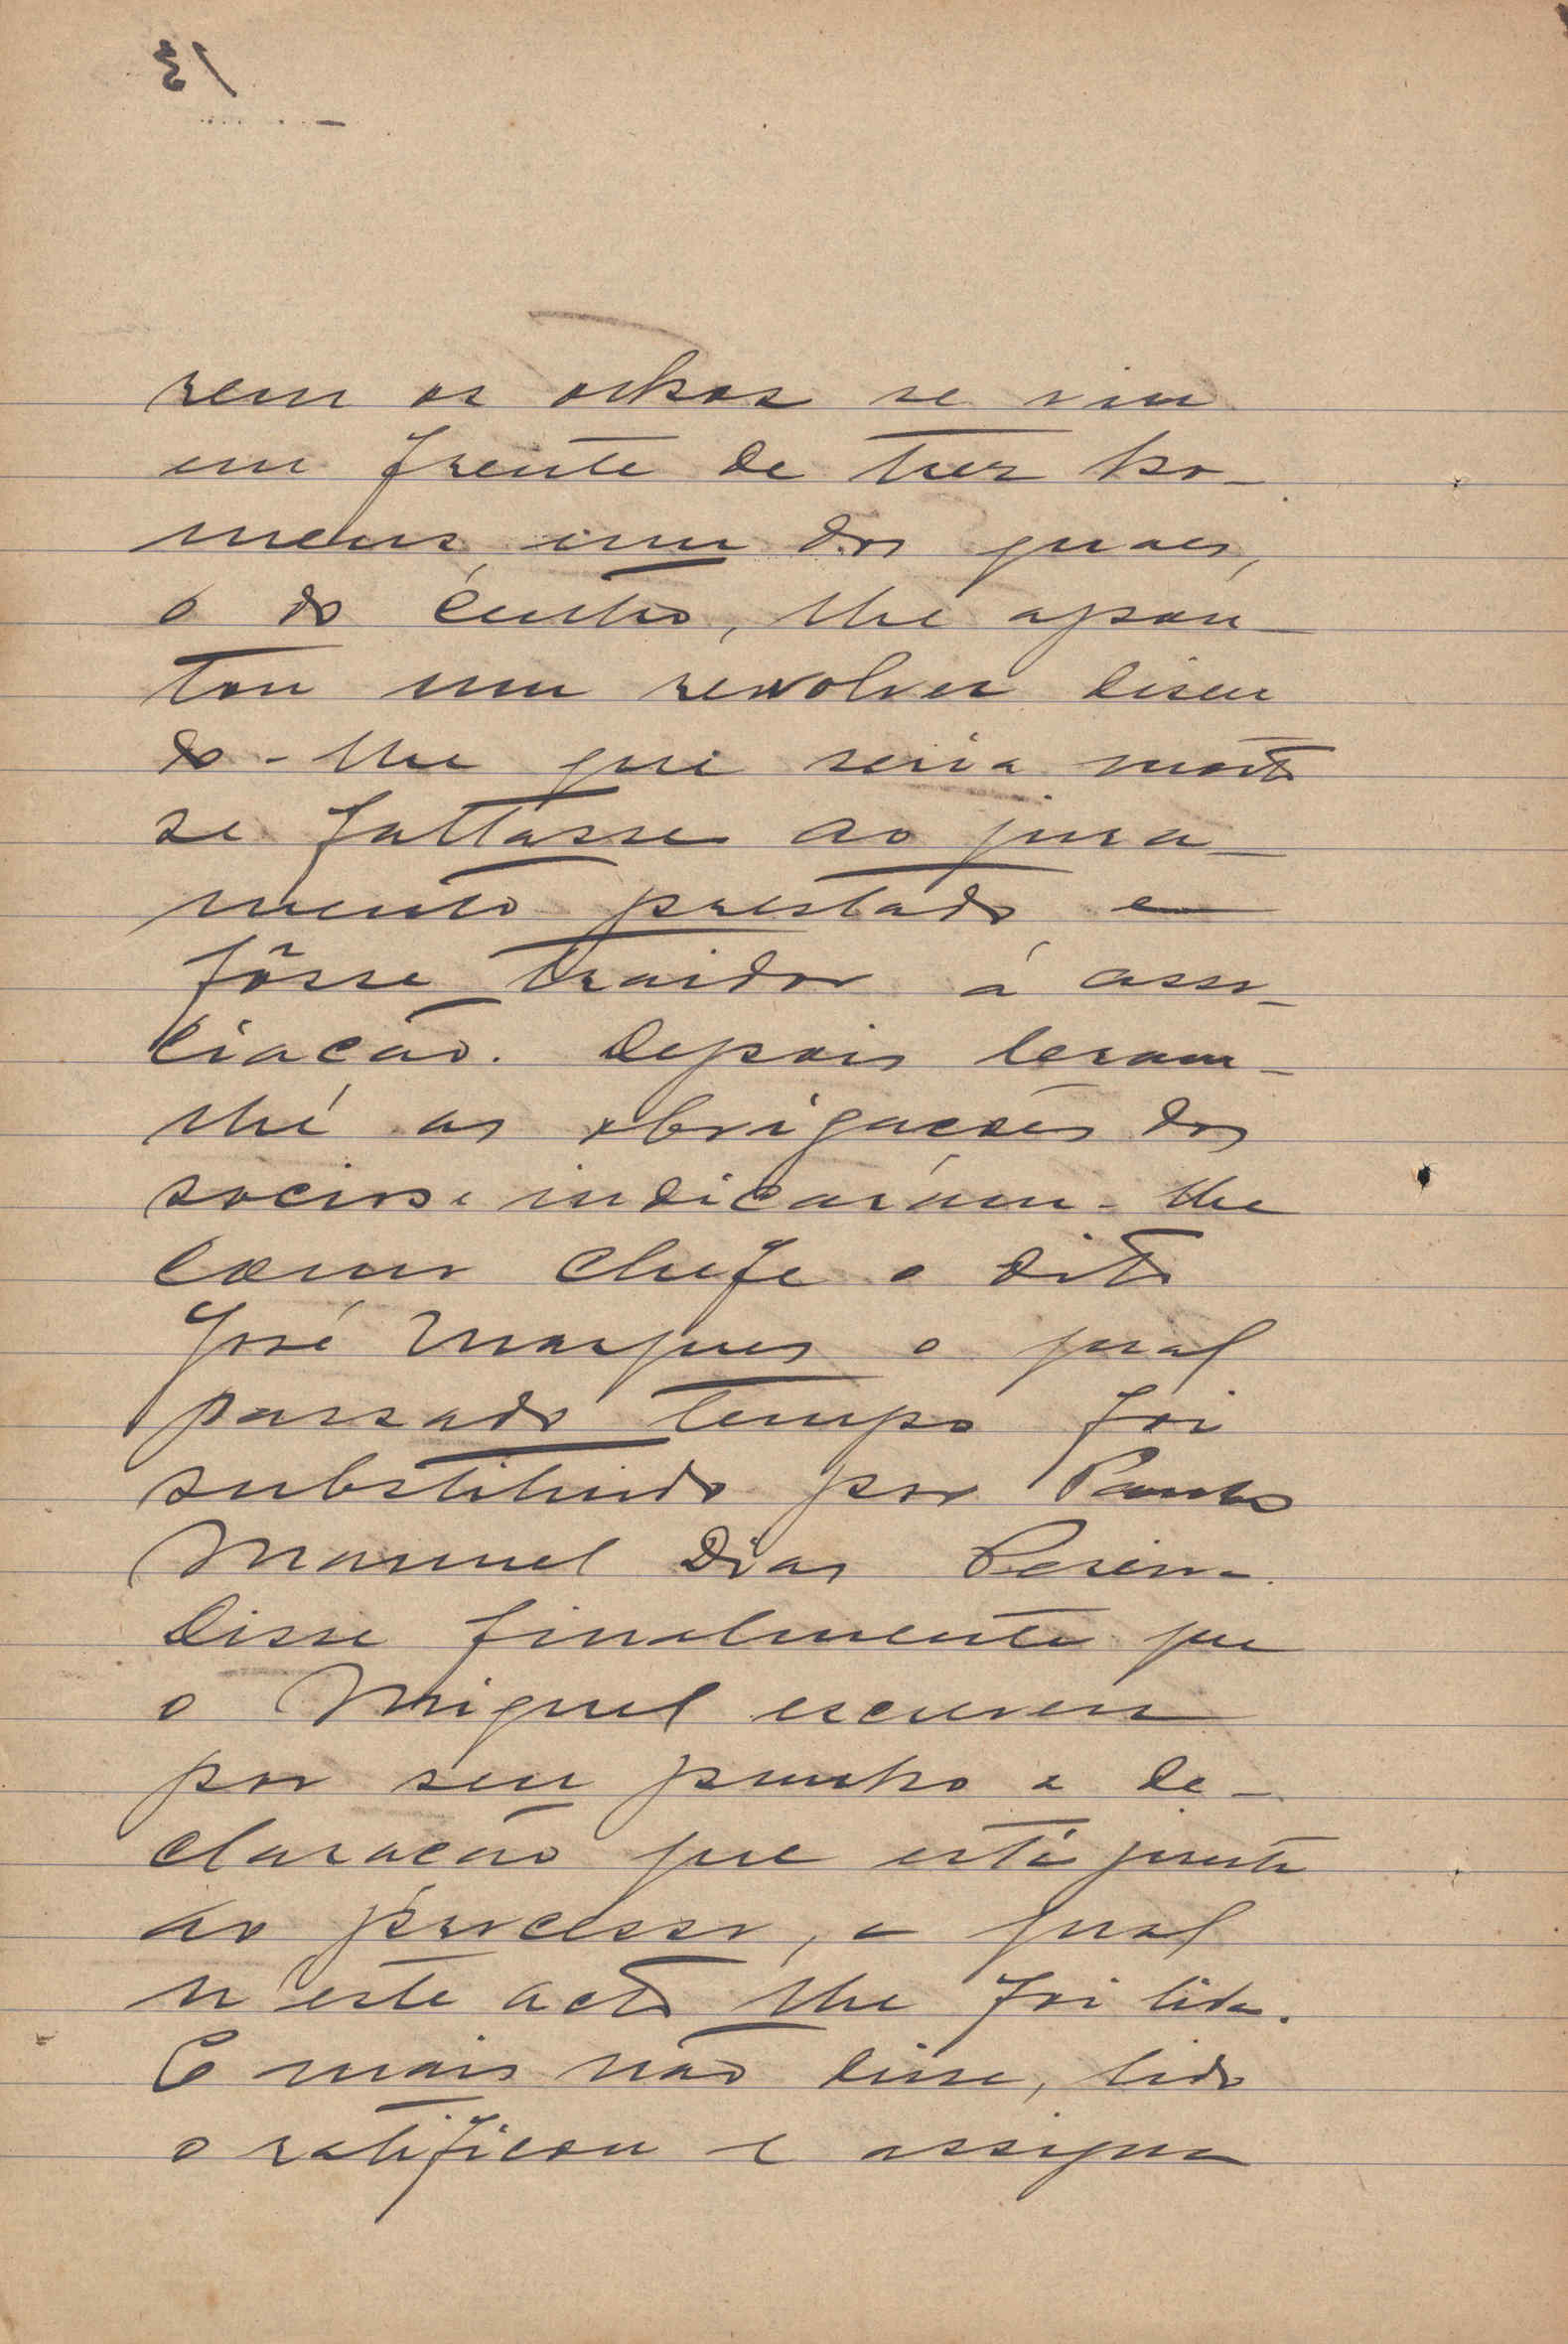 rem os olhos se viu
em frente de trez ho-
mens, um dos quaes,
o do centro, lhe apon-
tou um revolver disen
do-lhe que seria morto
se faltasse ao jura-
mento prestado e
fôsse traidor á asso-
ciacão. Depois leram-
lhe as obrigacões dos
socios e indicaram-lhe
como chefe o dito
José Marques o qual
passado tempo foi
substituido por
Manuel Dias Pereira.
Disse finalmente que
o Miguel escreveu
por seu punho a de-
claracão que está junta
ao processo, a qual
n'este acto lhe foi lida.
E mais não disse, lido
o ratificou e assigna